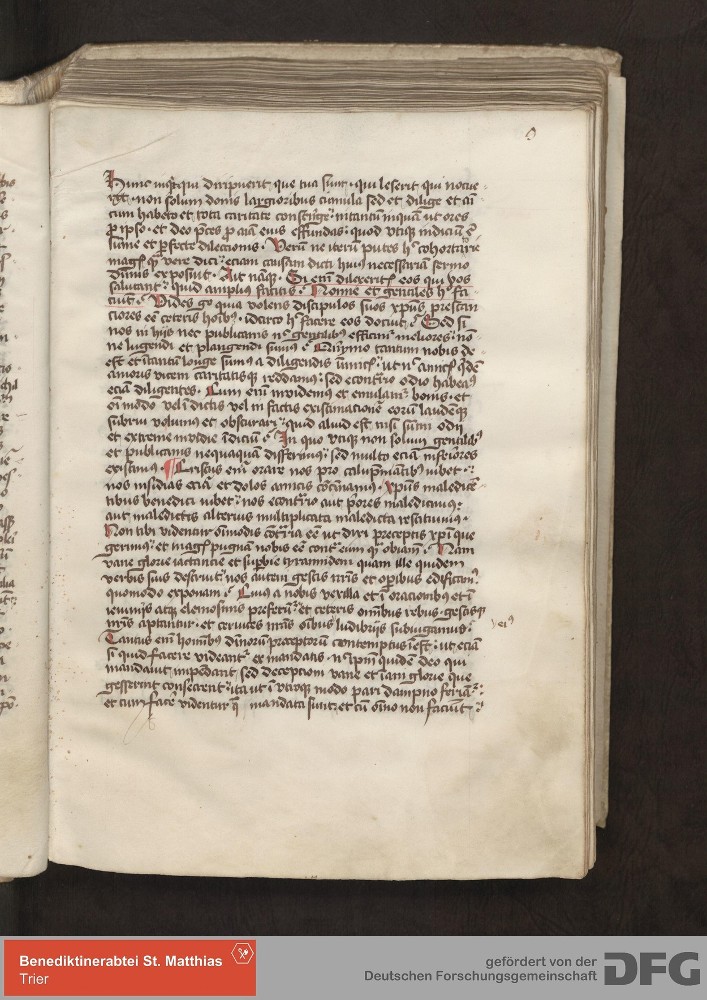 Hunc inquit qui diripuerit que tua sunt · qui leserit qui nocue
rit · non solum donis largioribus cumula sed et dilige et ami
cum habeto et tota caritate constringe · intantum inquam ut ores
pro ipso · et deo preces pro eius effundas · quod utique indicium
summe et perfecte dilectionis · Verum ne iterum putes hec cohortatorie
magis quam vere dici · etiam causam dicti huius necessariam sermo
divinus exposuit · Ait namque · Si enim dilexeritis eos qui vos
salutant · quid amplius facitis · Nonne et gentiles hec fa
ciunt · Vides ergo quia volens discipulos suos christus prestan
ciores esse ceteris hominibus · idcirco hec facere eos docuit · Sed si
nos in hijs nec publicanis nec gentilibus efficimur meliores · non
ne lugendi et plangendi sumus · tantum nobis de
est et intantum longe sumus a diligendis inimicis · ut nec amicis quidem
amoris vicem caritatisque reddamus · sed econtrario odio habeamus
eciam diligentes · Cum enim invidemus et emulamur bonis · et
omni modo vel in dictis vel in factis existimacionem eorum laudemque
subrui volumus et obscurari · quid aliud est nisi summi odij
et extreme invidie indicium · In quo utique non solum gentilibus
et publicanis nequaquam differimus · sed multo eciam inferiores
existimus · Christus enim orare nos pro calumpniantibus iubet ·
nos insidias eciam et dolos amicis concinnamus · christus maledicen
tibus benedici iubet · nos econtrario aut priores maledicimus ·
aut maledictis alterius multiplicata maledicta restituimus ·
Non tibi videntur omnimodis contraria esse ut dixi preceptis christi que
gerimus · et magis pugnam nobis esse contra eum quam obediam · Nam
vane glorie iactancie et superbie tyrannidem quam ille quidem
verbis suis destruit · nos autem gestis nostris et operibus edificamus ·
quomodo exponam · Cuius a nobis vexilla et in oracionibus et in
ieiunijs atque elemosinis preferuntur et ceteris omnibus rebus · gestisque
nostris aptantur · et cervices nostras omnibus ludibrijs subiugamus ·
Tantus enim hominibus divinorum preceptorum contemptus inest · ut eciam
si quid facere videantur ex mandatis · non ipsum quidem deo qui
mandavit impendant sed decepcioni vane et inani glorie que
gesserint consecrent · ita ut in utroque modo pari dampno feriantur ·
et cum facere videntur que mandata sunt · et cum omnino non faciunt ·
Benediktinerabtei St. Matthias
Trier
gefördert von der
Deutschen Forschungsgemeinschaft
DFG